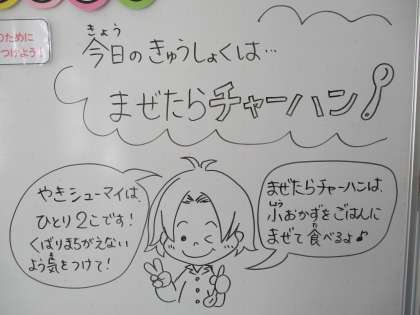 のために
つけよう!
きょう
今日のきゅうしょくは…
まぜたらチャーハン
やきシューマイは、
ひとり2こです!
くばりまちがえない
よう気をつけて!
まぜたらチャーハンは、
しょう
小おかずをごはんに
まぜて食べるよ♪